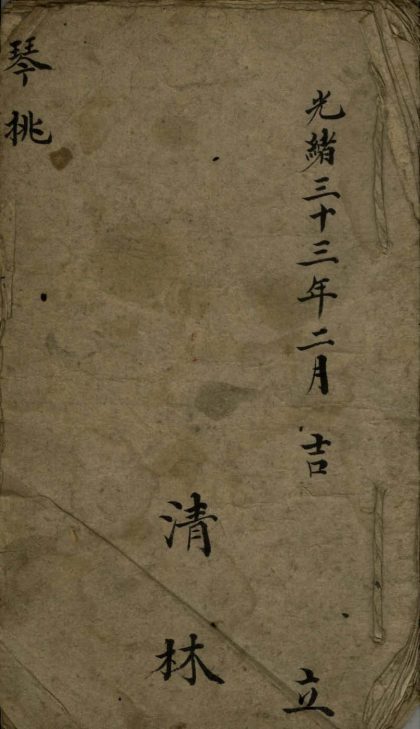 光緒三十三年二月吉立
清林
琴桃